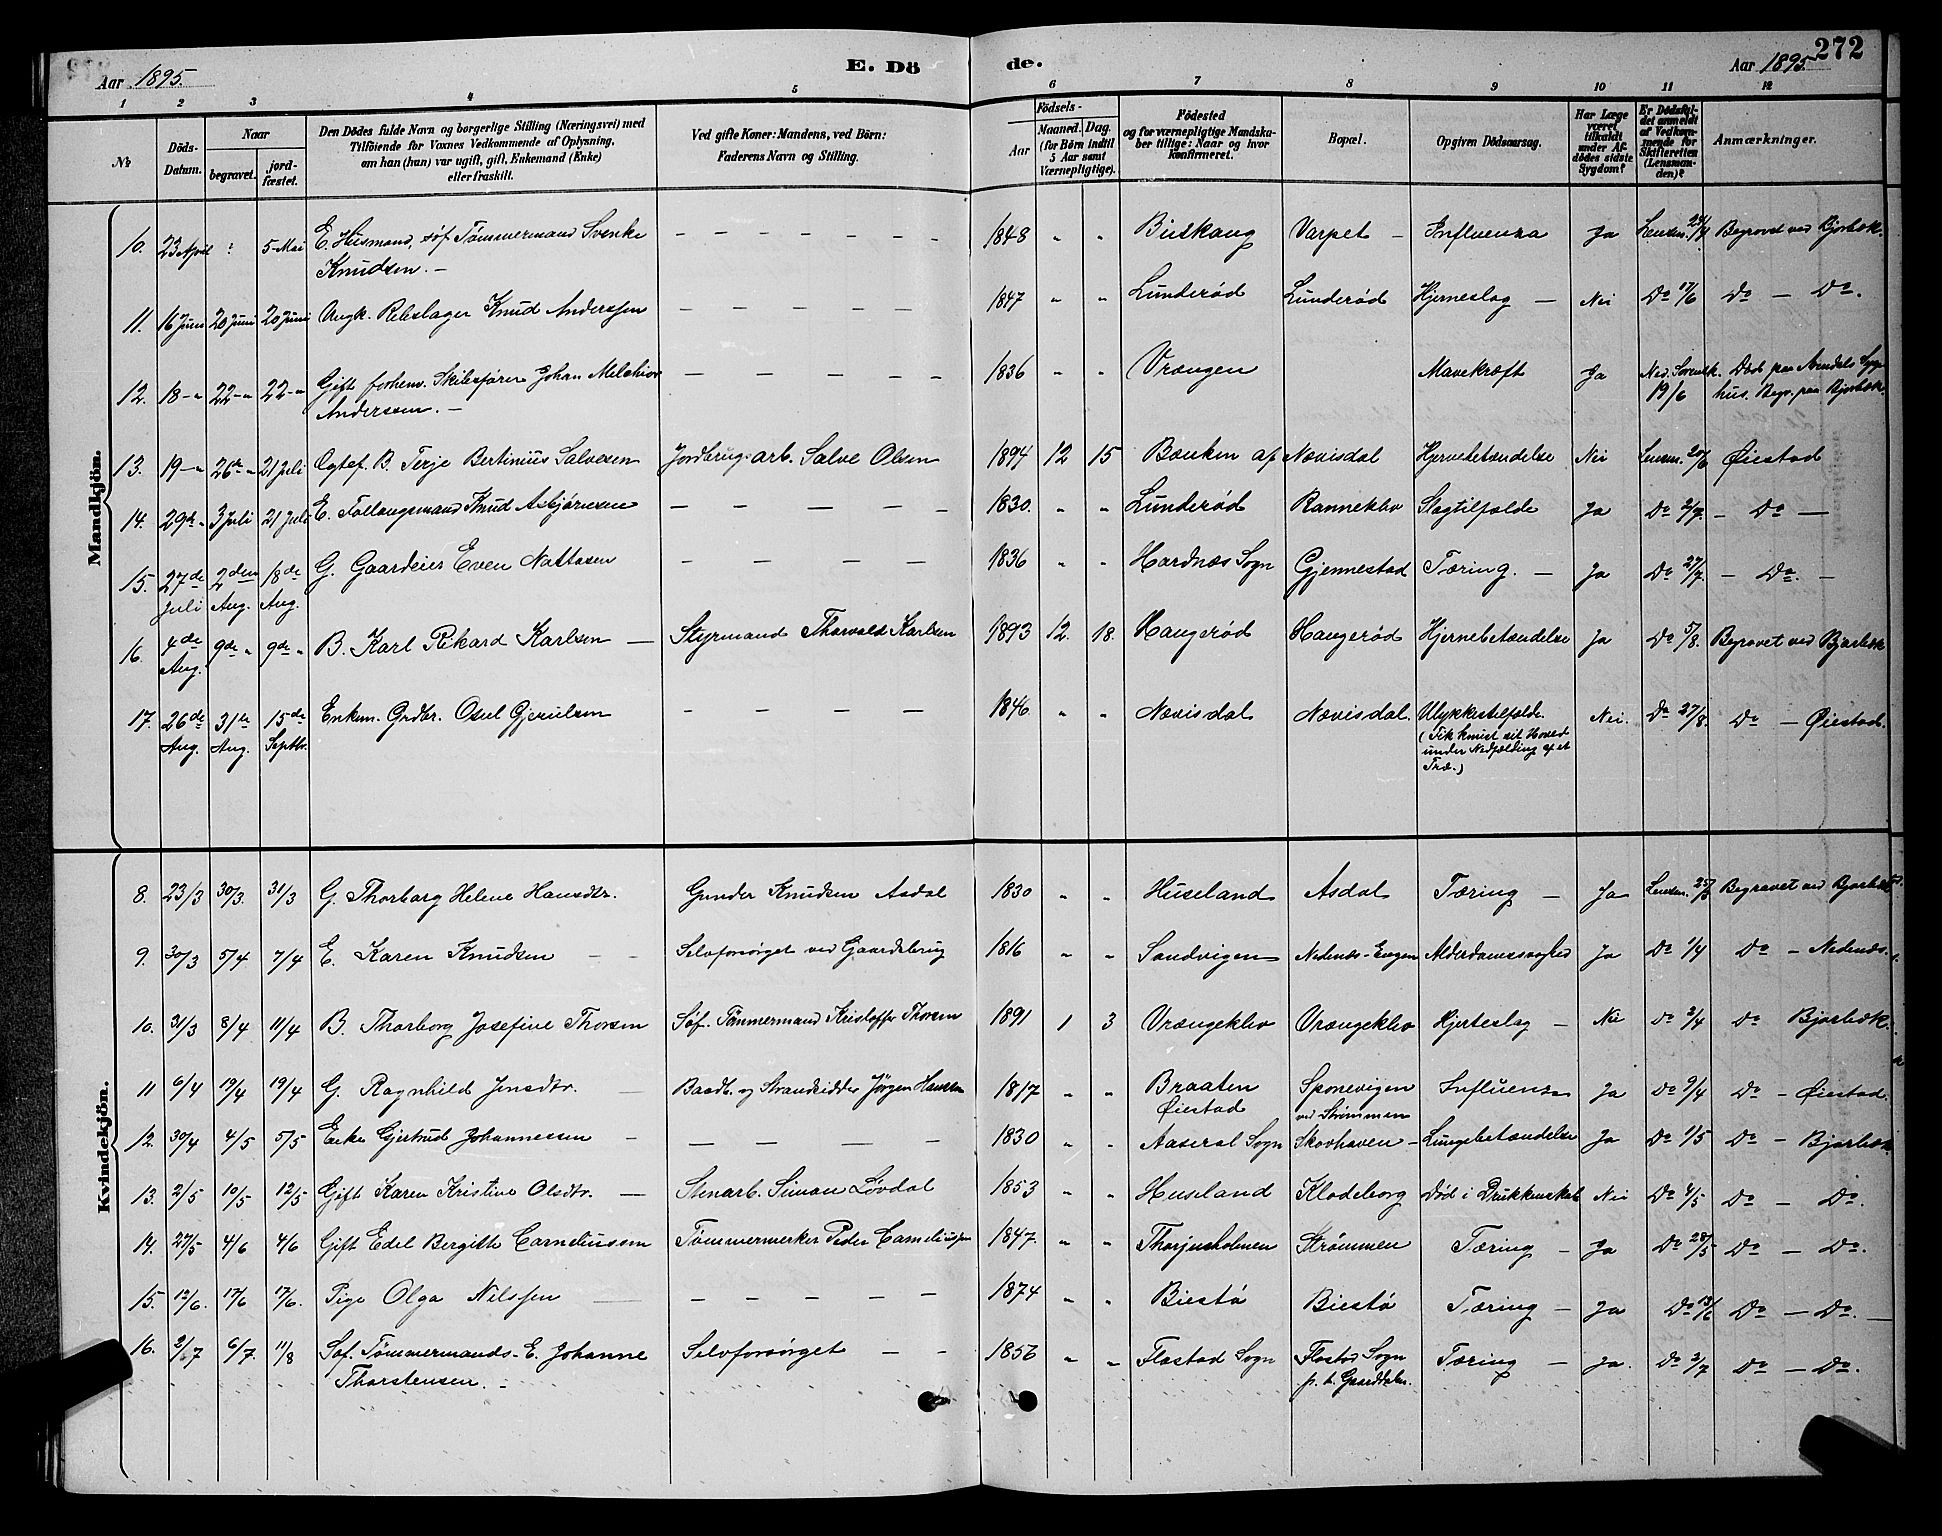 272
Aar 1895.
E. Dö
de.
Aar 1895.
1 2 3 4 5 6 7 8 9 10 11 12
No
Döds-Datum.
Naar
begravet.
jord-fæstet.
Den Dödes fulde Navn og borgerlige Stilling (Næringsvei) med
Tilföiende for Voxnes Vedkommende af Oplysning,
om han (hun) var ugift, gift, Enkemand (Enke)
eller fraskilt.
Ved gifte Koner: Mandens, ved Börn:
Faderens Navn og Stilling.
Födsels-
Aar
Maaned. Dag.
(for Börn indtil
5 Aar samt
Værnepligtige).
Födested
og for værnepligtige Mandska-
ber tillige: Naar og hvor
konfirmeret.
Bopæl.
Opgiven Dödsaarsag.
Har Læge
været
tilkaldt
under Af-
dödes sidste
Sygdom?
Er Dödsfal-
det anmeldt
af Vedkom-
mende for
Skifteretten
(Lensman-
den)?
Anmærkninger.
Mandkjön.
10. 23 April : 5 Mai E. Husmand, søf. Tømmermand Svenke Knudsen. – 1848 " " Buskaug Varpet – Influenza Ja Lensm. Begravet ved Bjorbæk.
11. 16 Juni 20 Juni 20 Juni Ungk. Rebslager Knud Anderssen 1847 " " Lunderød Lunderød Hjerneslag – Nei Do 17/6 Do – Do.
12. 18 – " 22 – " 22 – " Gift forhenv. Skibsfører Johan Melchior Anderssen. – 1836 " " Vrængen Mavekræft Ja Ned. Sorensk. 19/6 Død paa Arendals Syge-
hus. Begr. paa Bjorbæk.
13. 19 – " 26de " 21 Juli B. Terje Bertinius Salvesen Jordbrug. arb. Salve Olsen 1894 12 15 Bænken af Nævisdal Hjernebetændelse Nei Lensm. 20/6 Øiestad
14. 29de " 3 Juli 21 Juli E. Follaugsmand Knud Asbjørnsen 1830. " " Lunderød Ranneklev Slagtilfælde Ja Do 2/7. – Do –
15. 27de Juli 2den Aug. 18de Aug. G. Gaardeier Even Nattasen 1836 " " Hardnæs Sogn Gjennestad Tæring. – Ja Do 27/7 – Do. –
16. 4de Aug. 9de " 9de " B. Karl Rikard Karlsen – Styrmand Thorvald Karlsen 1893 12. 18. Haugerød Haugerød Hjernebetændelse Ja Do 5/8. Begravet ved Bjorbæk
17. 26de Aug. 31te Aug. 15de Septbr. Enkem. Grdbr. Osul Gjerulsen 1846. " " Nævisdal Nævisdal. Ulykkestilfælde.
(Fik knust sit Hoved
under Nedfælding af et
Træ.) Nei. Do 27/8. Do – Øiestad.
Kvindekjön.
8. 23/3 30/3. 31/3 G. Thorborg Helene Hansdtr. Gunder Knudsen Asdal 1830 " " Huseland Asdal Tæring – Ja Lensm. 25/3 Begravet ved Bjorbæk
9. 30/3 5/4 7/4 E. Karen Knudsen – – Selvforsørget ved Gaardsbrug 1816 " " Sandvigen Nedenæs-Engen Alderdomssvaghed Ja Do 1/4 Do – Nedenæs.
10. 31/3 8/4 11/4 B. Thorborg Josefine Thorsen Søf. Tømmermand Kristoffer Thorsen 1891 1 3 Vrængeklev Vrængeklev Hjerteslag – Nei Do 2/4 Do Bjorbæk.
11 6/4 19/4 19/4 G. Ragnhild Jensdtr. Baadb. og Strandsidder Jørgen Hansen 1817 " " Braaten
Øiestad Sponevigen
ved Strømmen Influenza Ja Do 9/4 Do – Øiestad.
12. 30/4 4/5 5/5 Enke Gjertrud Johannessen – 1830 " " Aaseral Sogn Skovhaven – Lungebetændelse Ja Do 1/5 Do – Bjorbæk
13. 2/5 10/5 12/5 Gift Karen Kristine Olsdtr. – Stenarb. Simon Løvdal 1853 " " Huseland Klodeborg Død i Drukkenskab Nei Do 4/5 Do – Do.
14. 27/5 4/6 4/6 Gift Edel Bergitte Corneliussen Tømmermerker Peder Corneliussen 1847. " " Thorjusholmen Strømmen Tæring – Ja Do 28/5 Do – Do.
15. 12/6. 17/6 17/6. Pige Olga Nilssen 1874 " " Biestø Biestø Tæring – Ja Do 13/6 Do – Do. –
16. 2/7 6/7. 11/8 Søf. Tømmermands-E. Johanne Thorstensen. – Selvforsørget – – 1856 " " Flostad Sogn Flostad Sogn
p. t. Gaarddalen. Tæring – Ja. Do 3/7 Do – Do.